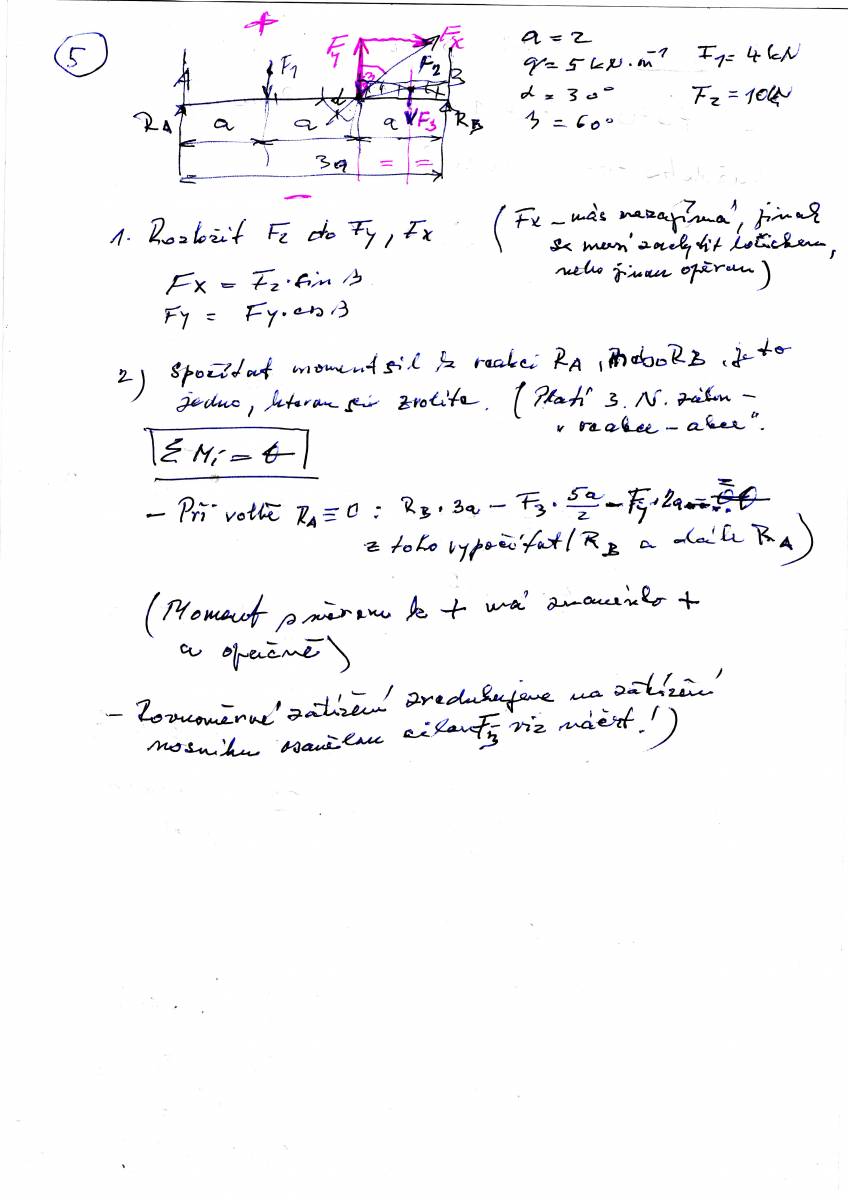 5
+
Fy
Fx
F1
F2
β
A
B
α
RA
a
a
a
F3
RB
3a
=
=
−
a = 2
q = 5 kN·m⁻¹
F1 = 4 kN
α = 30°
F2 = 10 kN
β = 60°
1. Rozložit F2 do Fy, Fx
(Fx – nás nezajímá, jinak
se musí zachytit ložiskem,
nebo jinou opěrou)
Fx = F2·sin β
Fy = Fy·cos β
2) Spočítat moment sil k reakci RA, nebo RB, je to
jedno, kterou si zvolíte. (Platí 3. N. zákon –
„reakce – akce".
Σ Mi = 0
– Při volbě RA ≡ 0 : RB · 3a − F3 · 5a/2 − Fy · 2a = 0
z toho vypočítat (RB a dále RA)
(Moment směrem k + má znaménko +
a opačně)
– Rovnoměrné zatížení zredukujeme na zatížení
nosníku osamělou silou F3 viz náčrt!)